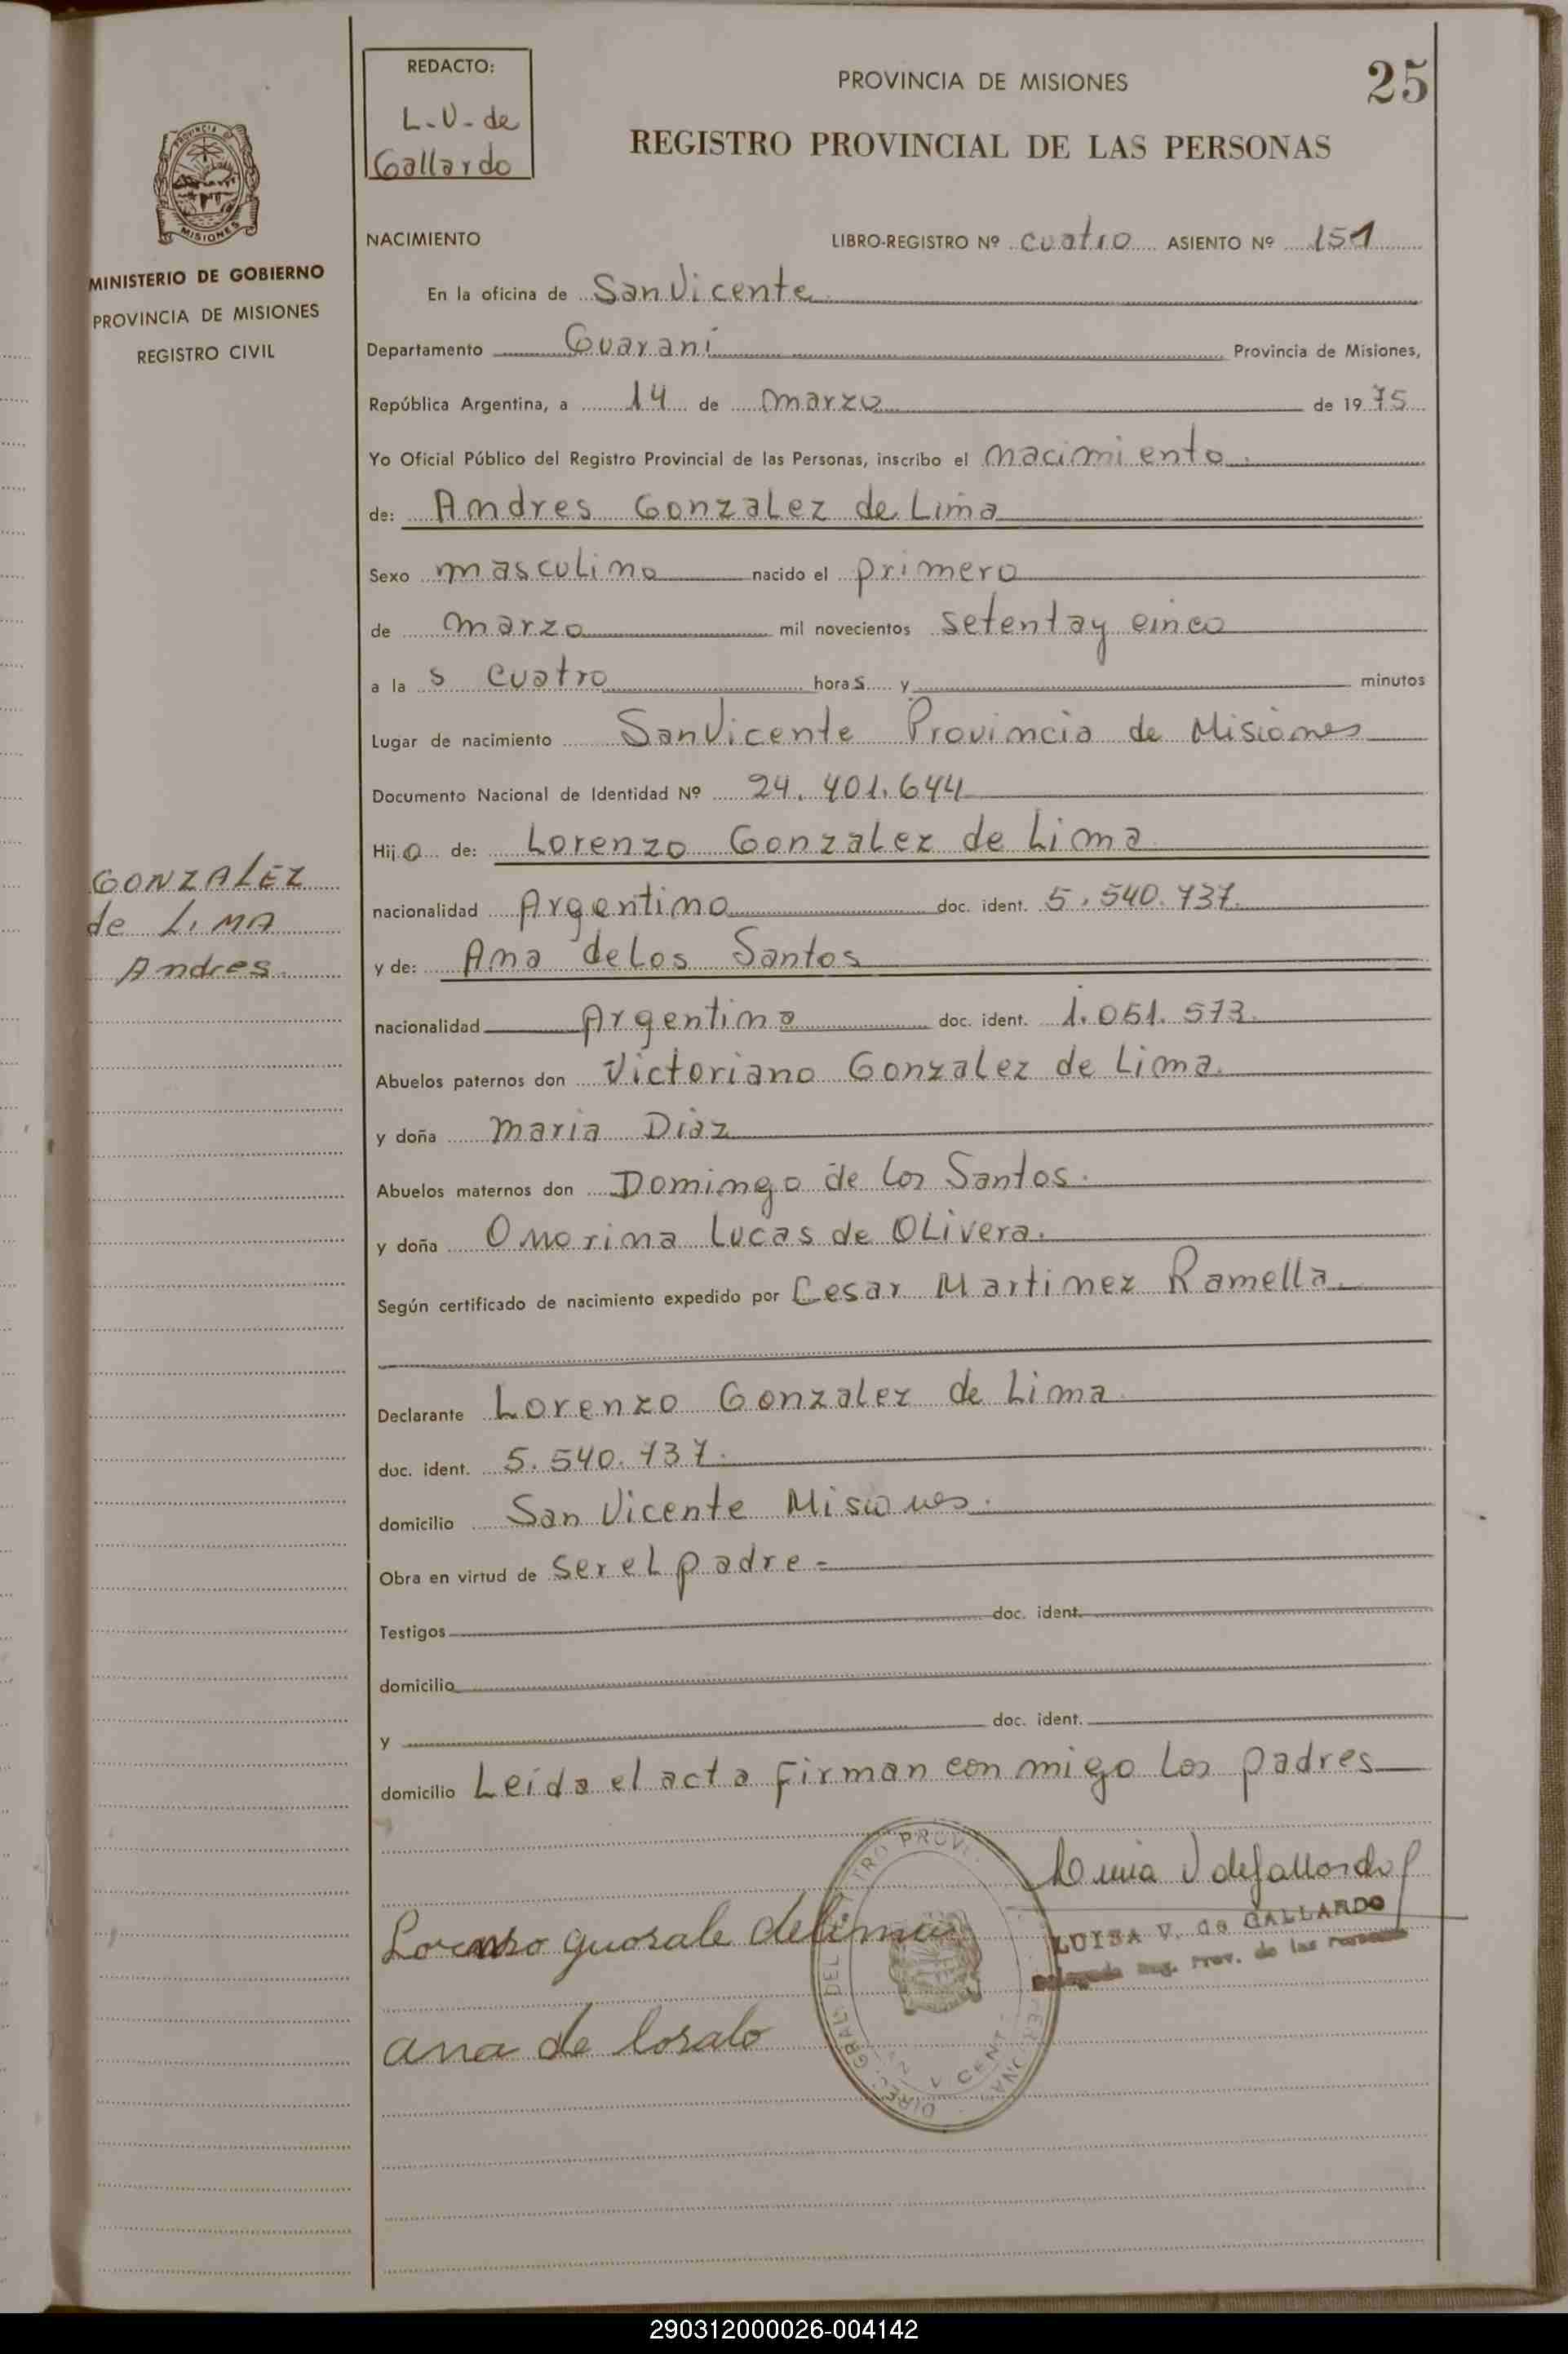 REDACTO:
L-V- de
Gallardo
PROVINCIA DE MISIONES
25
REGISTRO PROVINCIAL DE LAS PERSONAS
PROVINCIA DE
MISIONES
MINISTERIO DE GOBIERNO
PROVINCIA DE MISIONES
REGISTRO CIVIL
NACIMIENTO LIBRO-REGISTRO Nº cuatro ASIENTO Nº 151
En la oficina de San Vicente
Departamento Guarani Provincia de Misiones,
República Argentina, a 14 de marzo de 1975
Yo Oficial Público del Registro Provincial de las Personas, inscribo el nacimiento.
de: Andres Gonzalez de Lima
Sexo masculino nacido el primero
de marzo mil novecientos setenta y cinco
a la s cuatro horas y minutos
Lugar de nacimiento San Vicente Provincia de Misiones
Documento Nacional de Identidad Nº 24.401.644
Hijo de: Lorenzo Gonzalez de Lima
GONZALEZ
de LIMA
Andres.
nacionalidad Argentino doc. ident. 5.540.737.
y de: Ana de Los Santos
nacionalidad Argentina doc. ident. 1.051.573.
Abuelos paternos don Victoriano Gonzalez de Lima.
y doña Maria Diaz
Abuelos maternos don Domingo de los Santos.
y doña Onorina Lucas de Olivera.
Según certificado de nacimiento expedido por Cesar Martinez Ramella.
Declarante Lorenzo Gonzalez de Lima
doc. ident. 5.540.737.
domicilio San Vicente Misiones.
Obra en virtud de ser el padre =
Testigos doc. ident.
domicilio
y doc. ident.
domicilio Leída el acta firman con migo los padres
LUISA V. de GALLARDO
Reg. Prov. de las Personas
ana de
290312000026-004142